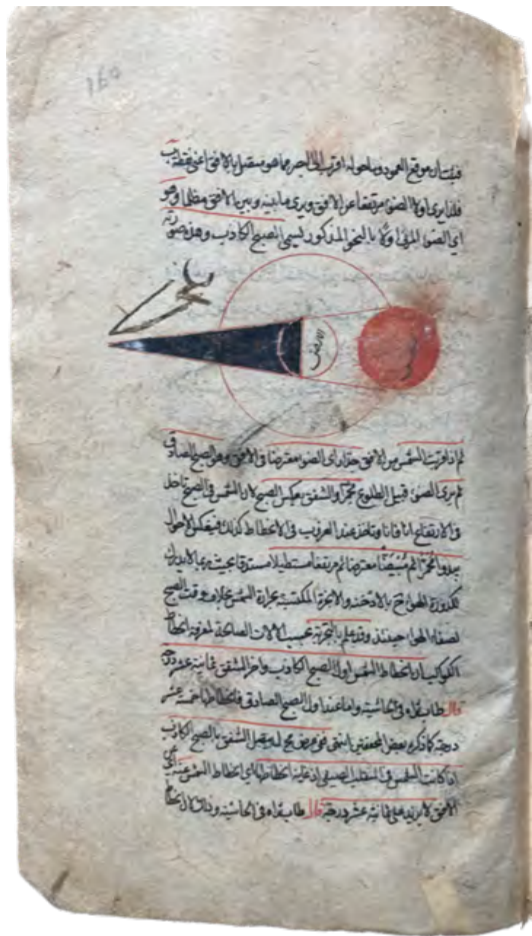 فيثبت ان موقع العمود وما حوله اقرب الى البصر مما هو متصل بالافق اعنى نقطة ب
فلذا يرى اولا الضوء مرتفعا عن الافق ويرى ما بينه وبين الافق مظلما وهو
اى الضوء المرئى اولا بالنحو المذكور يسمى الصبح الكاذب وهذه صورته
الارض
ثم اذا قربت الشمس من الافق جدا رأى الضوء معترضا فى الافق وهو الصبح الصادق
ثم يرى الضوء قبيل الطلوع محمرا والشفق بعكس الصبح لان الشمس فى الصبح تاخذ
فى الارتفاع انا فانا وتاخذ عند الغروب فى الانحطاط كذلك فينعكس الاحوال
يبدو محمرا ثم مبيضا معترضا ثم مرتفعا مستطيلا بحيث
لكدورة الهواء بالادخنة والابخرة المكتسبة بحرارة الشمس بخلاف وقت الصبح
لصفاء الهواء حينئذ وقد علم بالتجربة بحسب الالات الصالحة لمعرفة انحطاط
الكواكب ان انحطاط الشمس اول الصبح الكاذب واخر الشفق ثمانية عشر درجة
قال طاب ثراه فى الحاشية واما عند اول الصبح الصادق فانحطاطها خمسة عشر
درجة كما ذكره بعض المحققين انتهى ففى عرض مح ل يتصل الشفق بالصبح الكاذب
اذا كانت الشمس فى المنقلب الصيفى اذ غاية انحطاطها اى انحطاط الشمس عن
الافق لا يزيد على ثمانية عشر درجة قال طاب ثراه فى الحاشية وذلك لان انحطاط